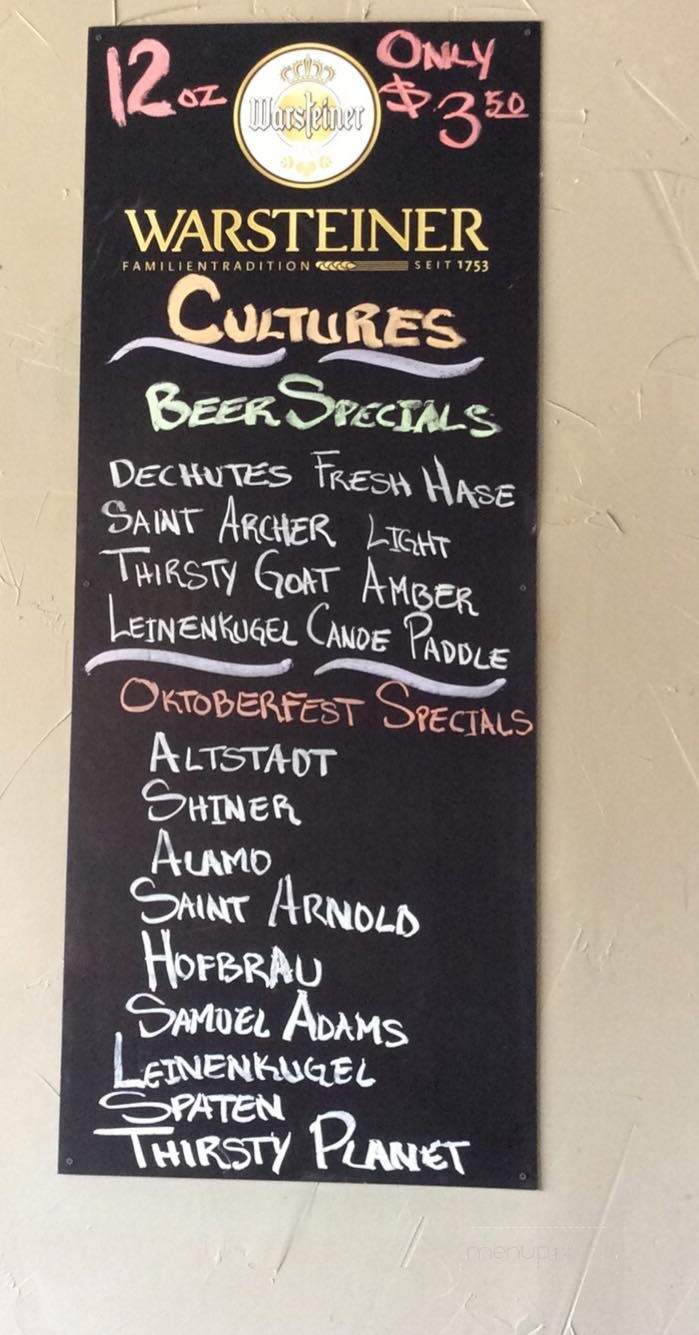 12 oz
ONLY
$3.50
Warsteiner
WARSTEINER
FAMILIENTRADITION SEIT 1753
CULTURES
BEER SPECIALS
DECHUTES FRESH HASE
SAINT ARCHER LIGHT
THIRSTY GOAT AMBER
LEINENKUGEL CANOE PADDLE
OKTOBERFEST SPECIALS
ALTSTADT
SHINER
ALAMO
SAINT ARNOLD
HOFBRAU
SAMUEL ADAMS
LEINENKUGEL
SPATEN
THIRSTY PLANET